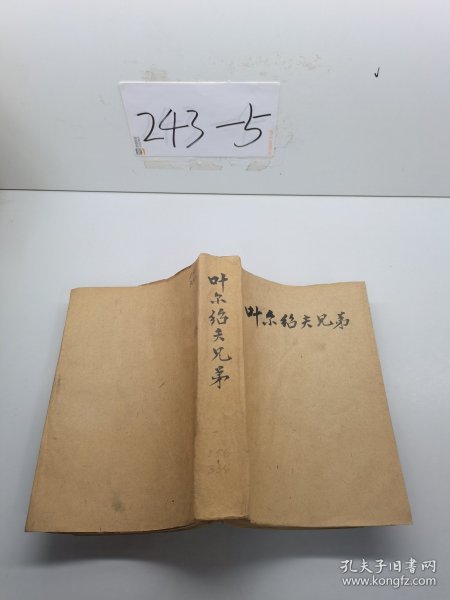 243-5
叶尔绍夫兄弟
叶尔绍夫兄弟
孔夫子旧书网
www.kongfz.com